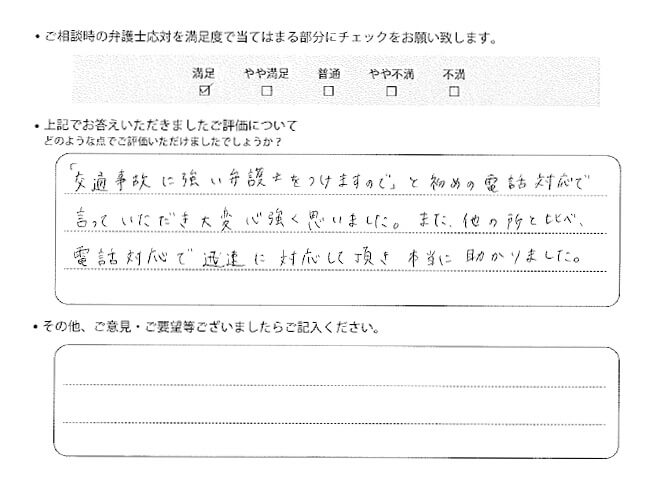 • ご相談時の弁護士応対を満足度で当てはまる部分にチェックをお願い致します。
満足 やや満足 普通 やや不満 不満
☑ ☐ ☐ ☐ ☐
• 上記でお答えいただきましたご評価について
どのような点でご評価いただけましたでしょうか？
「交通事故に強い弁護士をつけますので」と初めの電話対応で
言っていただき大変心強く思いました。また、他の所と比べ、
電話対応で迅速に対応して頂き本当に助かりました。
• その他、ご意見・ご要望等ございましたらご記入ください。